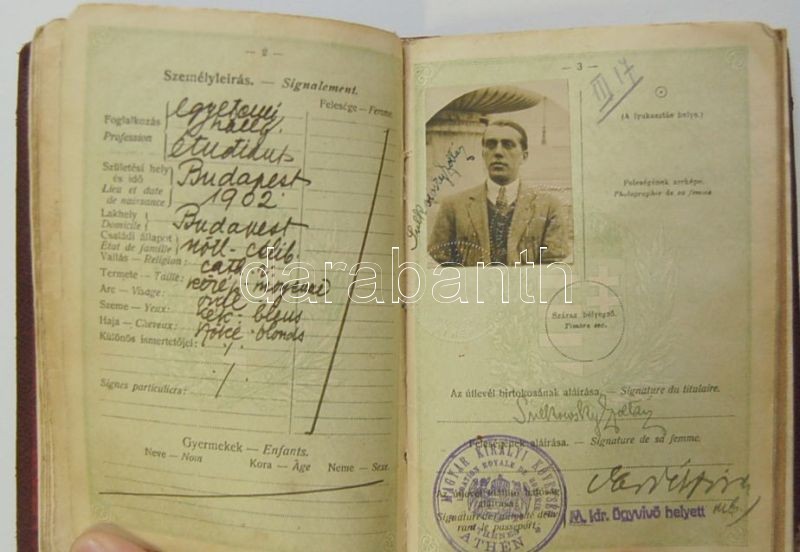 — 2 —
Személyleírás. — Signalement.
Felesége — Femme.
Foglalkozás
Profession
egyetemi
hallg.
étudiant
Születési hely
és idő
Lieu et date
de naissance
Budapest
1902
Lakhely
Domicile
Budapest
Családi állapot
État de famille
nőtl - célib.
Vallás — Religion:
cath.
Termete — Taille:
közép moyenne
Arc — Visage:
Szeme — Yeux:
kék - bleus
Haja — Cheveux:
szőke blonds
Különös ismertetőjei:
Signes particuliers:
Gyermekek — Enfants.
Neve — Nom
Kora — Âge
Neme — Sexe.
— 3 —
III 17
(A lyukasztás helye.)
Sulkowszky Zoltán
Feleségének arcképe.
Photographie de sa femme.
Száraz bélyegző.
Timbre sec.
Az útlevél birtokosának aláírása. — Signature du titulaire.
Sulkowsky Zoltán
Feleségének aláírása. — Signature de sa femme.
MAGYAR KIRÁLYI KÖVETSÉG
LÉGATION ROYALE DE HONGRIE
ATHÈNES
ATHÉN
Az útlevelet kiállító hatóság
aláírása.
Signature de l'autorité déliv-
rant le passeport.
M. kir. ügyvivő helyett
darabanth